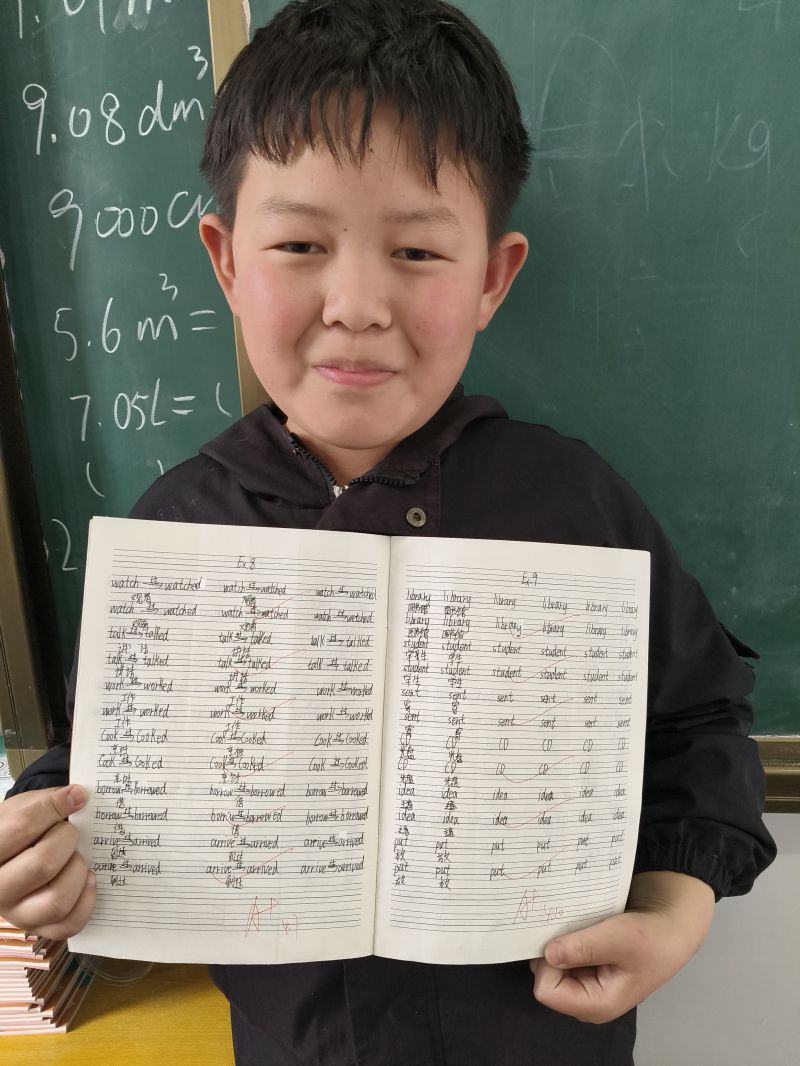 9.08 dm³
9000 c
5.6 m³ =
7.05L = (
( )
kg
Ex.8
watch 过→ watched watch 过→ watched watch 过→ watched
观看 观看
watch 过→ watched watch 过→ watched watch 过→ watched
观看 观看
talk 过→ talked talk 过→ talked talk 过→ talked
讲话 讲话
talk 过→ talked talk 过→ talked talk 过→ talked
讲话 讲话
work 过→ worked work 过→ worked work 过→ worked
工作 工作
work 过→ worked work 过→ worked work 过→ worked
工作 工作
Cook 过→ Cooked Cook 过→ Cooked Cook 过→ Cooked
烹饪 烹饪
Cook 过→ Cooked Cook 过→ Cooked Cook 过→ Cooked
烹饪 烹饪
borrow 过→ borrowed borrow 过→ borrowed borrow 过→ borrowed
借 借
borrow 过→ borrowed borrow 过→ borrowed borrow 过→ borrowed
借 借
arrive 过→ arrived arrive 过→ arrived arrive 过→ arrived
到达 到达
arrive 过→ arrived arrive 过→ arrived arrive 过→ arrived
到达 到达
A+
Ex.9
library library library library library library
图书馆 图书馆
library library library library library library
图书馆 图书馆
student student student student student student
学生 学生
student student student student student student
学生 学生
sent sent sent sent sent sent
寄 寄
sent sent sent sent sent sent
寄 寄
CD CD CD CD CD CD
光盘 光盘
CD CD CD CD CD CD
光盘 光盘
idea idea idea idea idea idea
主意 主意
idea idea idea idea idea idea
主意 主意
put put put put put put
放 放
put put put put put put
放 放
A+